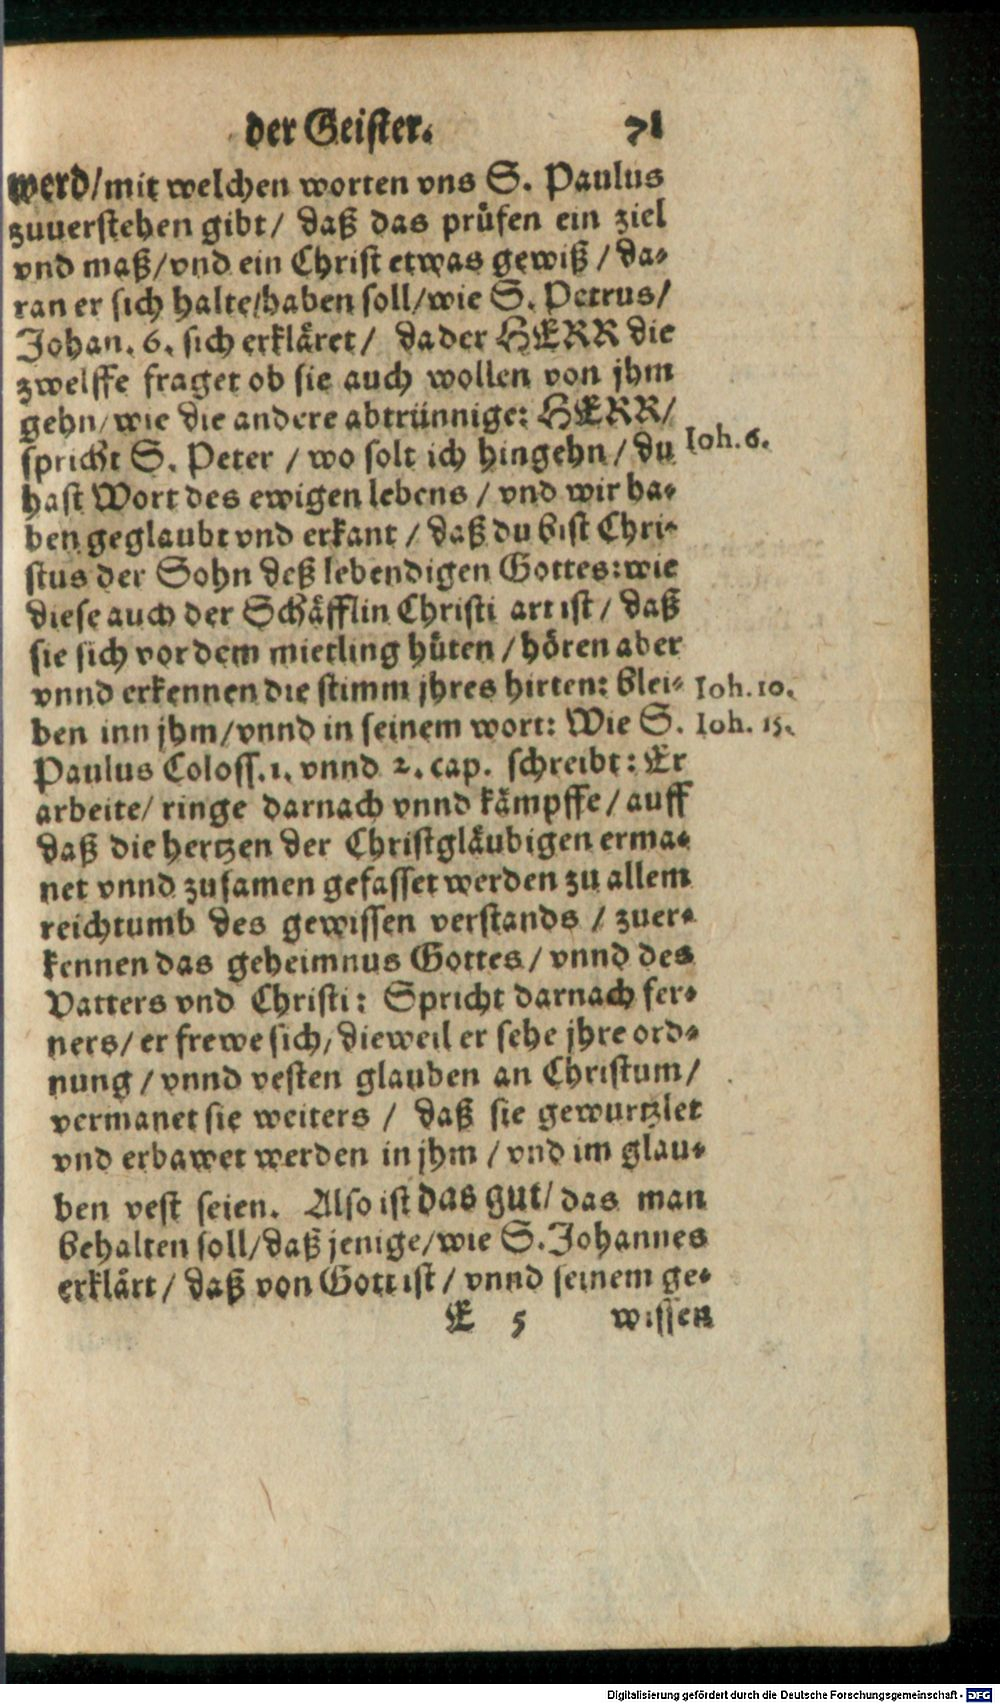 der Geister. 71
werd/mit welchen worten vns S. Paulus
zuuerstehen gibt/ daß das prüfen ein ziel
vnd maß/vnd ein Christ etwas gewiß/da-
ran er sich halte/haben soll/wie S. Petrus/
Johan. 6. sich erkläret/ da der HERR die
zwelffe fraget ob sie auch wollen von jhm
gehn/wie die andere abtrünnige: HERR/
spricht S. Peter/wo solt ich hingehn/du
Ioh. 6.
hast Wort des ewigen lebens/vnd wir ha-
ben geglaubt vnd erkant/daß du bist Chri-
stus der Sohn deß lebendigen Gottes: wie
diese auch der Schäfflin Christi art ist/daß
sie sich vor dem mietling hüten/hören aber
vnnd erkennen die stimm jhres hirten: blei-
Ioh. 10.
ben inn jhm/vnnd in seinem wort: Wie S.
Ioh. 15.
Paulus Coloss. 1. vnnd 2. cap. schreibt: Er
arbeite/ringe darnach vnnd kämpffe/auff
daß die hertzen der Christgläubigen erma-
net vnnd zusamen gefasset werden zu allem
reichtumb des gewissen verstands/zuer-
kennen das geheimnus Gottes/vnnd des
Vatters vnd Christi: Spricht darnach fer-
ners/er frewe sich/dieweil er sehe jhre ord-
nung/vnnd vesten glauben an Christum/
vermanet sie weiters/ daß sie gewurtzlet
vnd erbawet werden in jhm/vnd im glau-
ben vest seien. Also ist das gut/das man
behalten soll/daß jenige/wie S. Johannes
erklärt/daß von Gott ist/vnnd seinem ge-
E 5 wissen
Digitalisierung gefördert durch die Deutsche Forschungsgemeinschaft - DFG